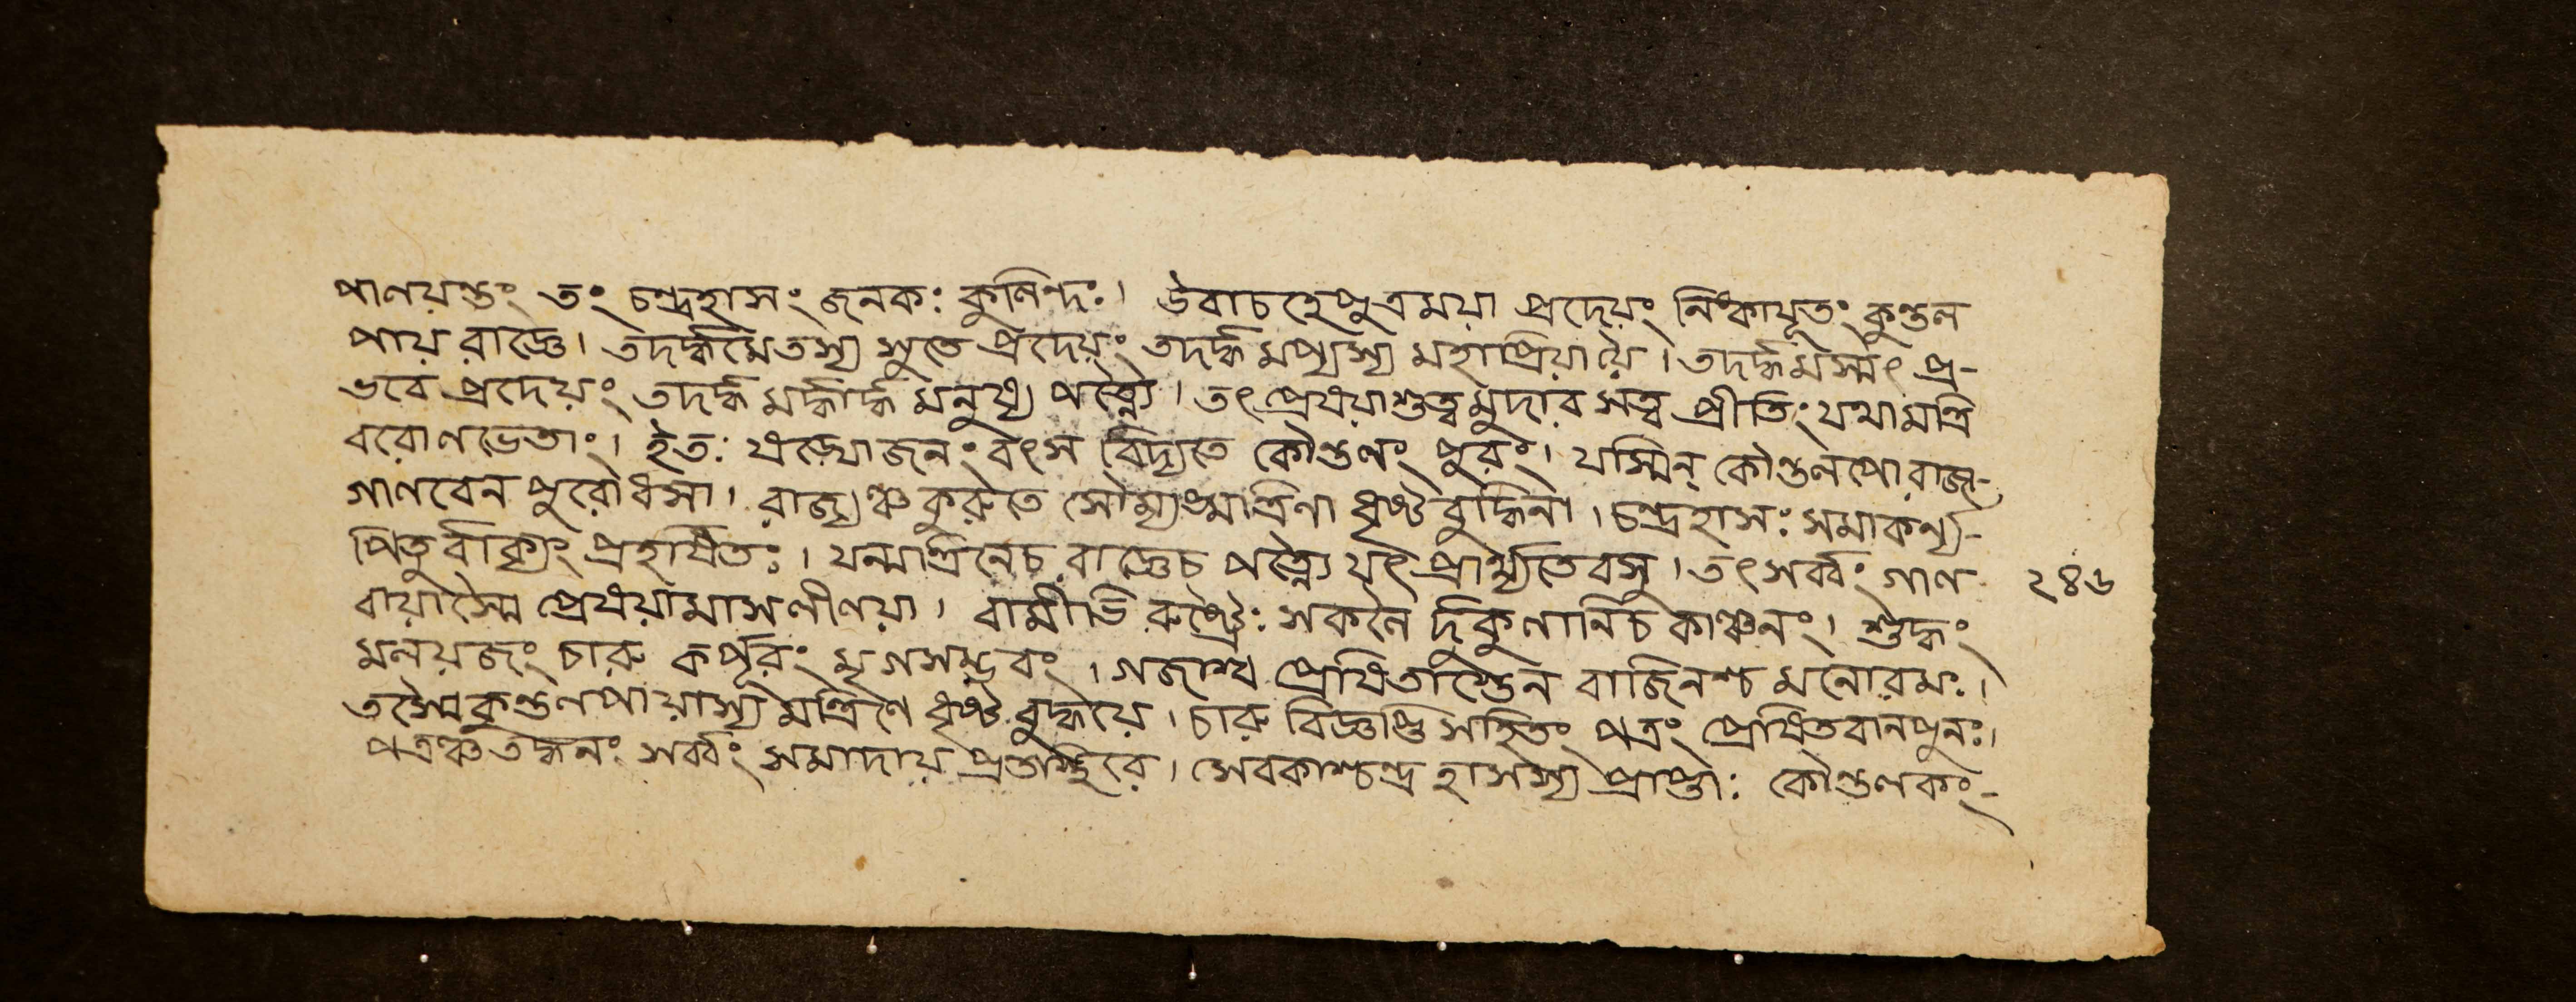 পালয়ন্তং তং চন্দ্রহাসং জনকঃ কুলিন্দঃ। উবাচহেপুত্রময়া প্রদেয়ং নিংকাযুতং কুন্তল
পায় রাজ্ঞে। তদর্দ্ধমেতস্য সুতে প্রদেয়ং তদর্দ্ধ মপ্যস্য মহাপ্রিয়ায়ৈ। তদর্দ্ধমস্মৎ প্র-
ভবে প্রদেয়ং তদর্দ্ধ মর্দ্ধার্দ্ধ মনুষ্য পত্ন্যৈ। তৎ প্রেষয়াশুত্ব মুদার সত্ব প্রীতিং যথামন্ত্রি
বরোলভেতাং। ইতঃ ষড্যোজনং বৎস বিদ্যতে কৌন্তলং পুরং। যস্মিন্ কৌন্তলপো রাজা-
গালবেন পুরোধসা। রাজ্যঞ্চ কুরুতে সৌম্য মন্ত্রিণা ধৃষ্ট বুদ্ধিনা। চন্দ্রহাসঃ সমাকর্ণ্য-
পিতুর্বাক্যং প্রহর্ষিতঃ। যন্মন্ত্রিনেচ রাজ্ঞেচ পত্ন্যৈ যৎ প্রার্থ্যতে বসু। তৎসর্ব্বং গাল ২৪৬
বায়াস্মৈ প্রেষয়ামাসলীলয়া। বামীভি রুষ্ট্রৈঃ সকলৈ র্দুকুলানিচ কাঞ্চনং। শুদ্ধং
মলয়জং চারু কর্পূরং মৃগসম্ভবং। গজাশ্চ প্রেষিতাস্তেন বাজিনশ্চ মনোরমঃ।
তস্মৈ কুন্তলপায়াস্য মন্ত্রিণে ধৃষ্ট বুদ্ধয়ে। চারু বিজ্ঞপ্তি সহিতং পত্রং প্রেষিতবানপুনঃ।
পত্রঞ্চ তদ্ধনং সর্ব্বং সমাদায় প্রতস্থিরে। সেবকাশ্চন্দ্র হাসস্য প্রাপ্তাঃ কৌন্তলকং-